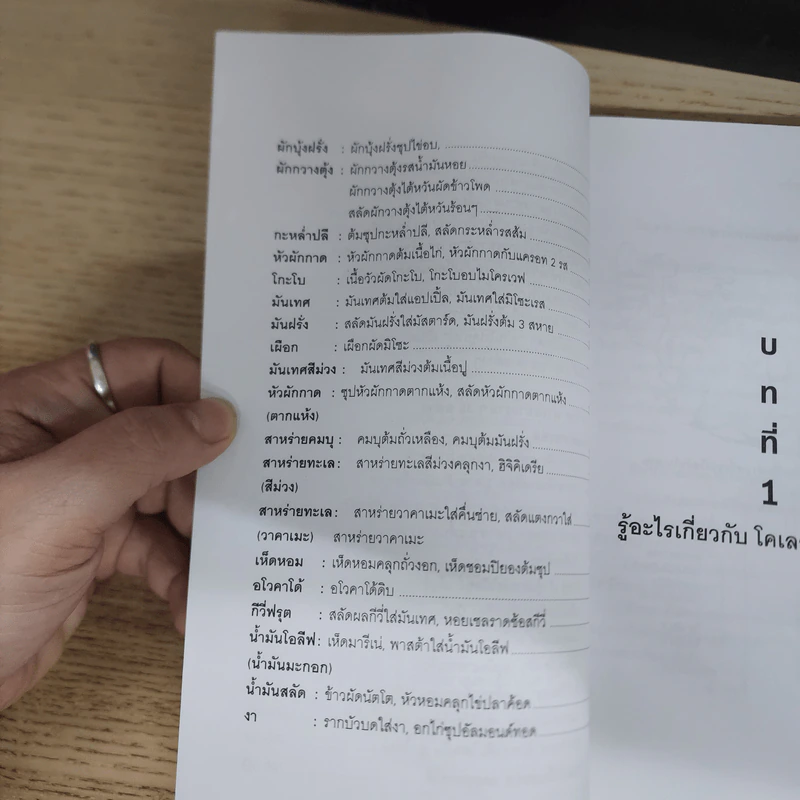 ผักบุ้งฝรั่ง : ผักบุ้งฝรั่งซุปไข่อบ,
ผักกวางตุ้ง : ผักกวางตุ้งรสน้ำมันหอย
ผักกวางตุ้งไต้หวันผัดข้าวโพด
สลัดผักกวางตุ้งไต้หวันร้อนๆ
กะหล่ำปลี : ต้มซุปกะหล่ำปลี, สลัดกระหล่ำรสส้ม
หัวผักกาด : หัวผักกาดต้มเนื้อไก่, หัวผักกาดกับแครอท 2 รส
โกะโบ : เนื้อวัวผัดโกะโบ, โกะโบอบไมโครเวฟ
มันเทศ : มันเทศต้มใส่แอปเปิ้ล, มันเทศใส่มิโซะเรส
มันฝรั่ง : สลัดมันฝรั่งใส่มัสตาร์ด, มันฝรั่งต้ม 3 สหาย
เผือก : เผือกผัดมิโซะ
มันเทศสีม่วง : มันเทศสีม่วงต้มเนื้อปู
หัวผักกาด : ซุปหัวผักกาดตากแห้ง, สลัดหัวผักกาดตากแห้ง
(ตากแห้ง)
สาหร่ายคมบุ : คมบุต้มถั่วเหลือง, คมบุต้มมันฝรั่ง
สาหร่ายทะเล : สาหร่ายทะเลสีม่วงคลุกงา, ฮิจิคิเดรีย
(สีม่วง)
สาหร่ายทะเล : สาหร่ายวาคาเมะใส่คื่นช่าย, สลัดแตงกวาใส่
(วาคาเมะ) สาหร่ายวาคาเมะ
เห็ดหอม : เห็ดหอมคลุกถั่วงอก, เห็ดชอมปิยองต้มซุป
อโวคาโด้ : อโวคาโด้ดิบ
กีวี่ฟรุต : สลัดผลกีวี่ใส่มันเทศ, หอยเซลราดซ้อสกีวี่
น้ำมันโอลีฟ : เห็ดมารีเน่, พาสต้าใส่น้ำมันโอลีฟ
(น้ำมันมะกอก)
น้ำมันสลัด : ข้าวผัดนัตโต, หัวหอมคลุกไข่ปลาค้อด
งา : รากบัวบดใส่งา, อกไก่ชุปอัลมอนด์ทอด
บ
ท
ที่
1
รู้อะไรเกี่ยวกับ โคเลส